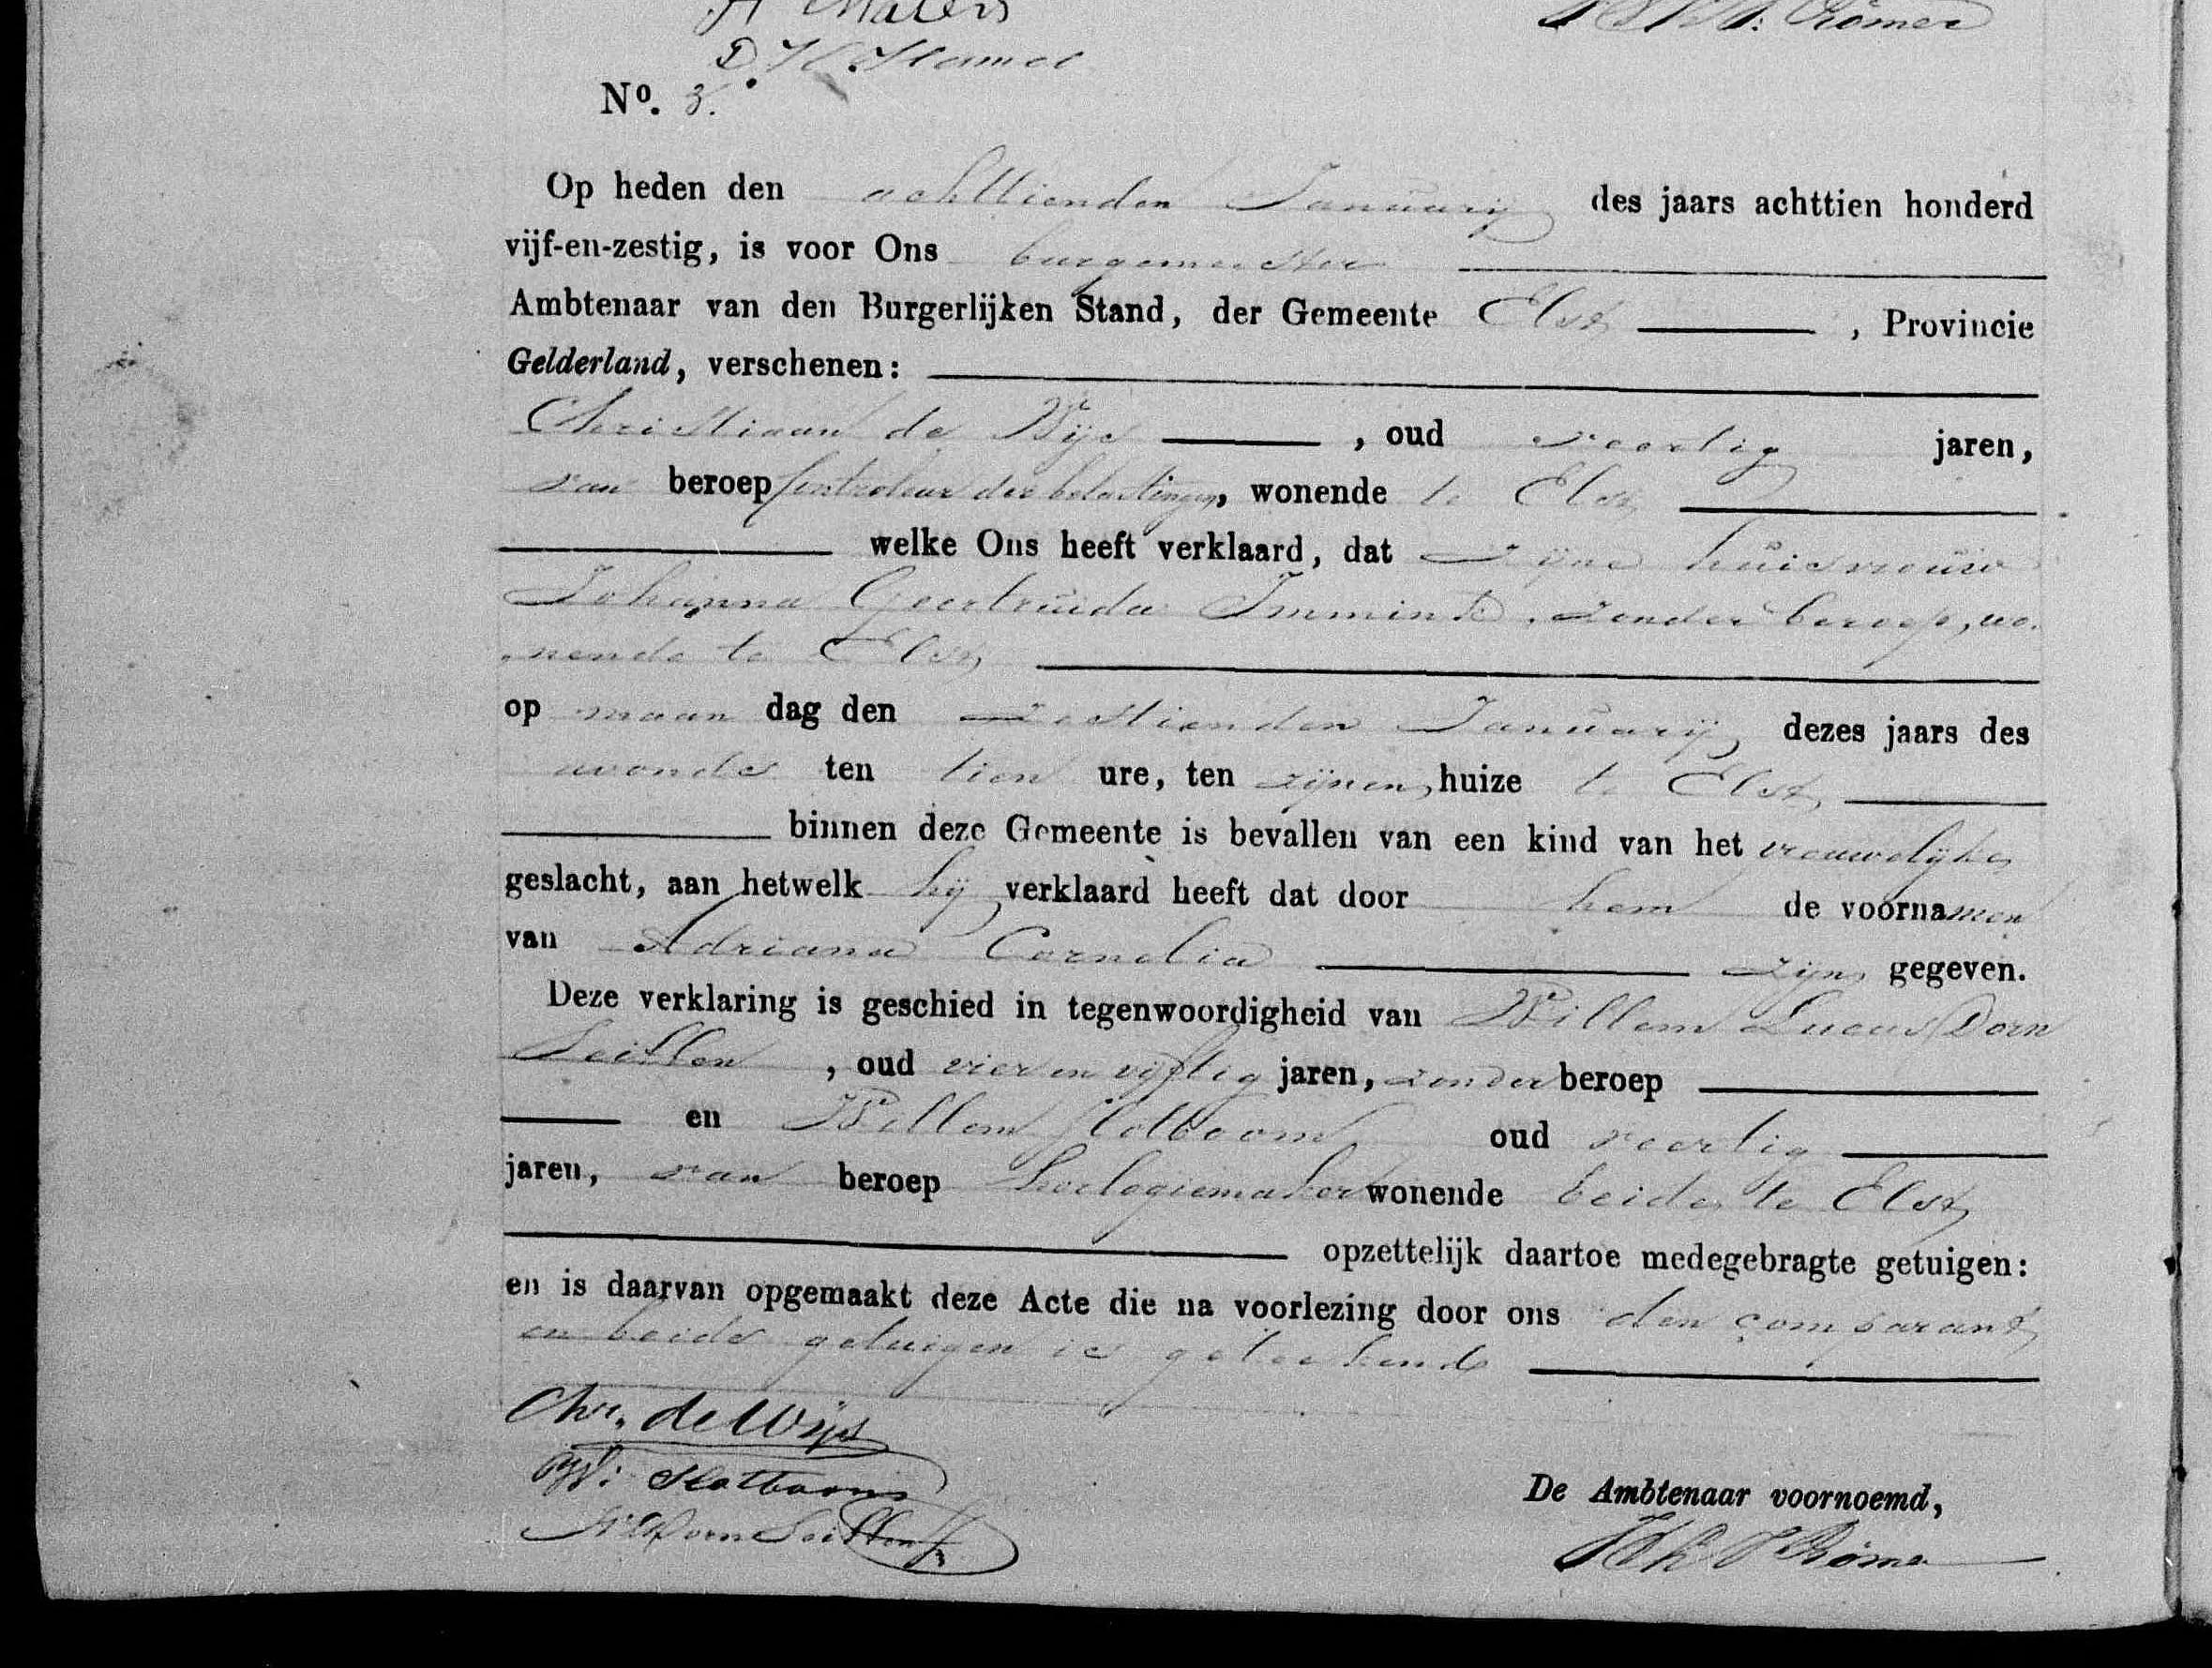 H Maters
D. H. Hamel
Römer
Nº. 3.
Op heden den achttienden Januarij des jaars achttien honderd
vijf-en-zestig, is voor Ons burgemeester
Ambtenaar van den Burgerlijken Stand, der Gemeente Elst , Provincie
Gelderland, verschenen:
Christiaan de Wijs , oud veertig jaren,
van beroep kontroleur der belastingen, wonende te Elst
welke Ons heeft verklaard, dat zijne huisvrouw
Johanna Geertruida Immink, zonder beroep, wo-
nende te Elst
op maan dag den zestienden Januarij dezes jaars des
avonds ten tien ure, ten zijnen huize te Elst
binnen deze Gemeente is bevallen van een kind van het vrouwelijke
geslacht, aan hetwelk hij verklaard heeft dat door hem de voornamen
van Adriana Cornelia zijn gegeven.
Deze verklaring is geschied in tegenwoordigheid van Willem Lucas Dorn
Seiffen , oud vier en vijftig jaren, zonder beroep
en Willem Slotboom oud veertig
jaren, van beroep horlogiemaker wonende beide te Elst
opzettelijk daartoe medegebragte getuigen:
en is daarvan opgemaakt deze Acte die na voorlezing door ons den comparant
en beide getuigen is geteekend
Chr. de Wijs
W: Slotboom
De Ambtenaar voornoemd,
W L Dorn Seiffen
Römer